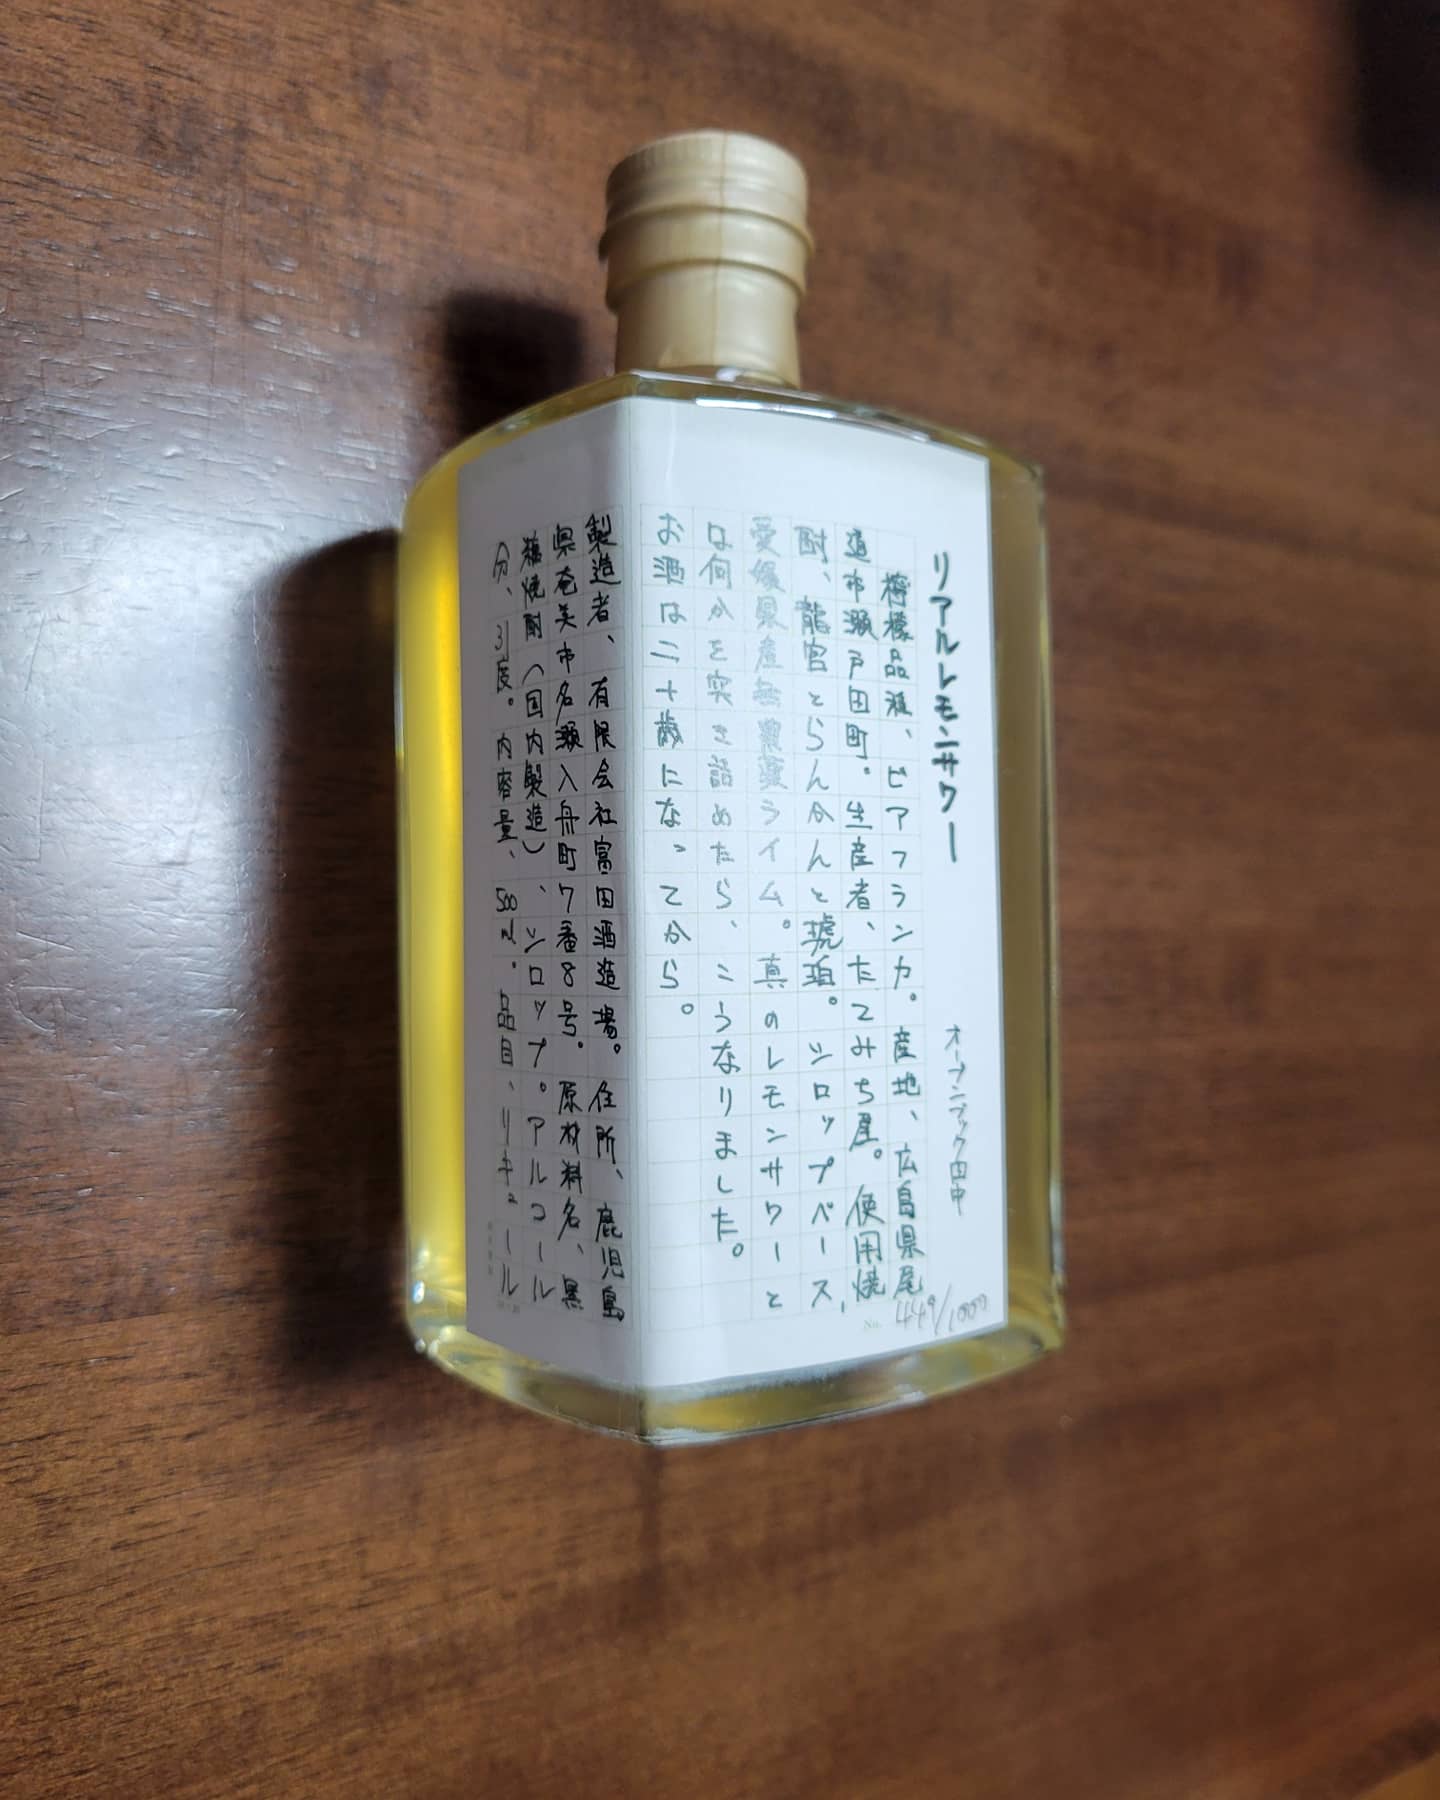 リアルレモンサワー
オープンブック田中
檸檬品種、ビアフランカ。産地、広島県尾
道市瀬戸田町。生産者、たてみち屋。使用焼
酎、龍宮とらんかんと琥珀。シロップベース、
愛媛県産無農薬ライム。真のレモンサワーと
は何かを突き詰めたら、こうなりました。
お酒は二十歳になってから。
No. 449/1000
製造者、有限会社富田酒造場。住所、鹿児島
県奄美市名瀬入舟町7番8号。原材料名、黒
糖焼酎(国内製造)、シロップ。アルコール
分、31度。内容量、500ml。品目、リキュール